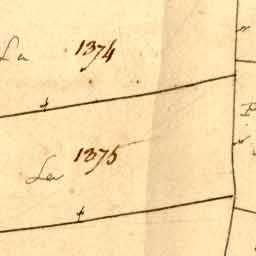 La 1374
1375
La